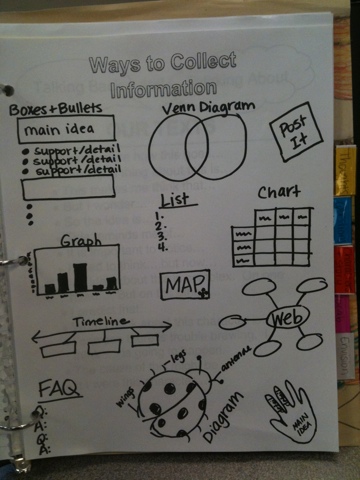 Ways to Collect
Information
Boxes+Bullets
main idea
support/detail
support/detail
support/detail
Venn Diagram
Post
It
List
1.
2.
3.
4.
Chart
Graph
MAP
Web
Timeline
FAQ
Q:
A:
Q:
A:
wings
legs
antennae
Diagram
MAIN
IDEA